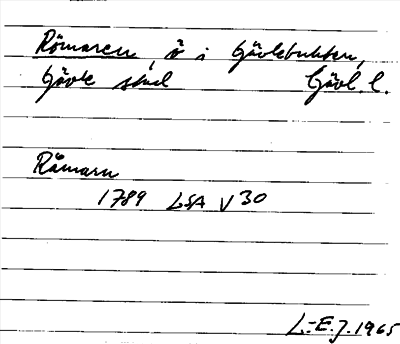 Römaren, ö i Gävlebukten,
Gävle stad Gävl. l.
Råmarn
1789 LSA V 30
L.-E. J. 1965